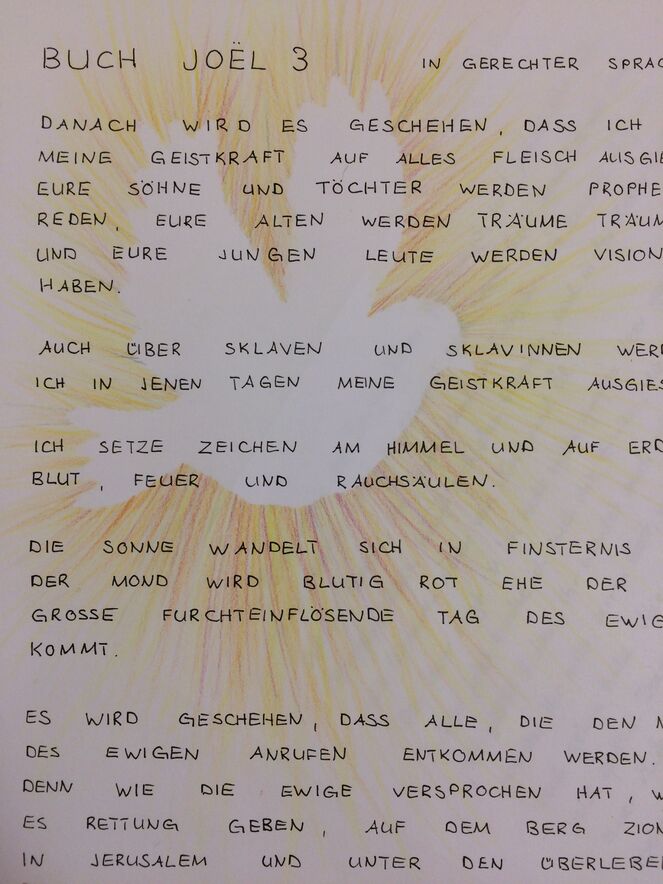 BUCH JOËL 3 IN GERECHTER SPRAC
DANACH WIRD ES GESCHEHEN, DASS ICH
MEINE GEISTKRAFT AUF ALLES FLEISCH AUSGIE
EURE SÖHNE UND TÖCHTER WERDEN PROPHE
REDEN, EURE ALTEN WERDEN TRÄUME TRÄUM
UND EURE JUNGEN LEUTE WERDEN VISION
HABEN.
AUCH ÜBER SKLAVEN UND SKLAVINNEN WERD
ICH IN JENEN TAGEN MEINE GEISTKRAFT AUSGIES
ICH SETZE ZEICHEN AM HIMMEL UND AUF ERD
BLUT, FEUER UND RAUCHSÄULEN.
DIE SONNE WANDELT SICH IN FINSTERNIS
DER MOND WIRD BLUTIG ROT EHE DER
GROSSE FURCHTEINFLÖSENDE TAG DES EWIG
KOMMT.
ES WIRD GESCHEHEN, DASS ALLE, DIE DEN N
DES EWIGEN ANRUFEN ENTKOMMEN WERDEN.
DENN WIE DIE EWIGE VERSPROCHEN HAT, W
ES RETTUNG GEBEN, AUF DEM BERG ZION
IN JERUSALEM UND UNTER DEN ÜBERLEBEN